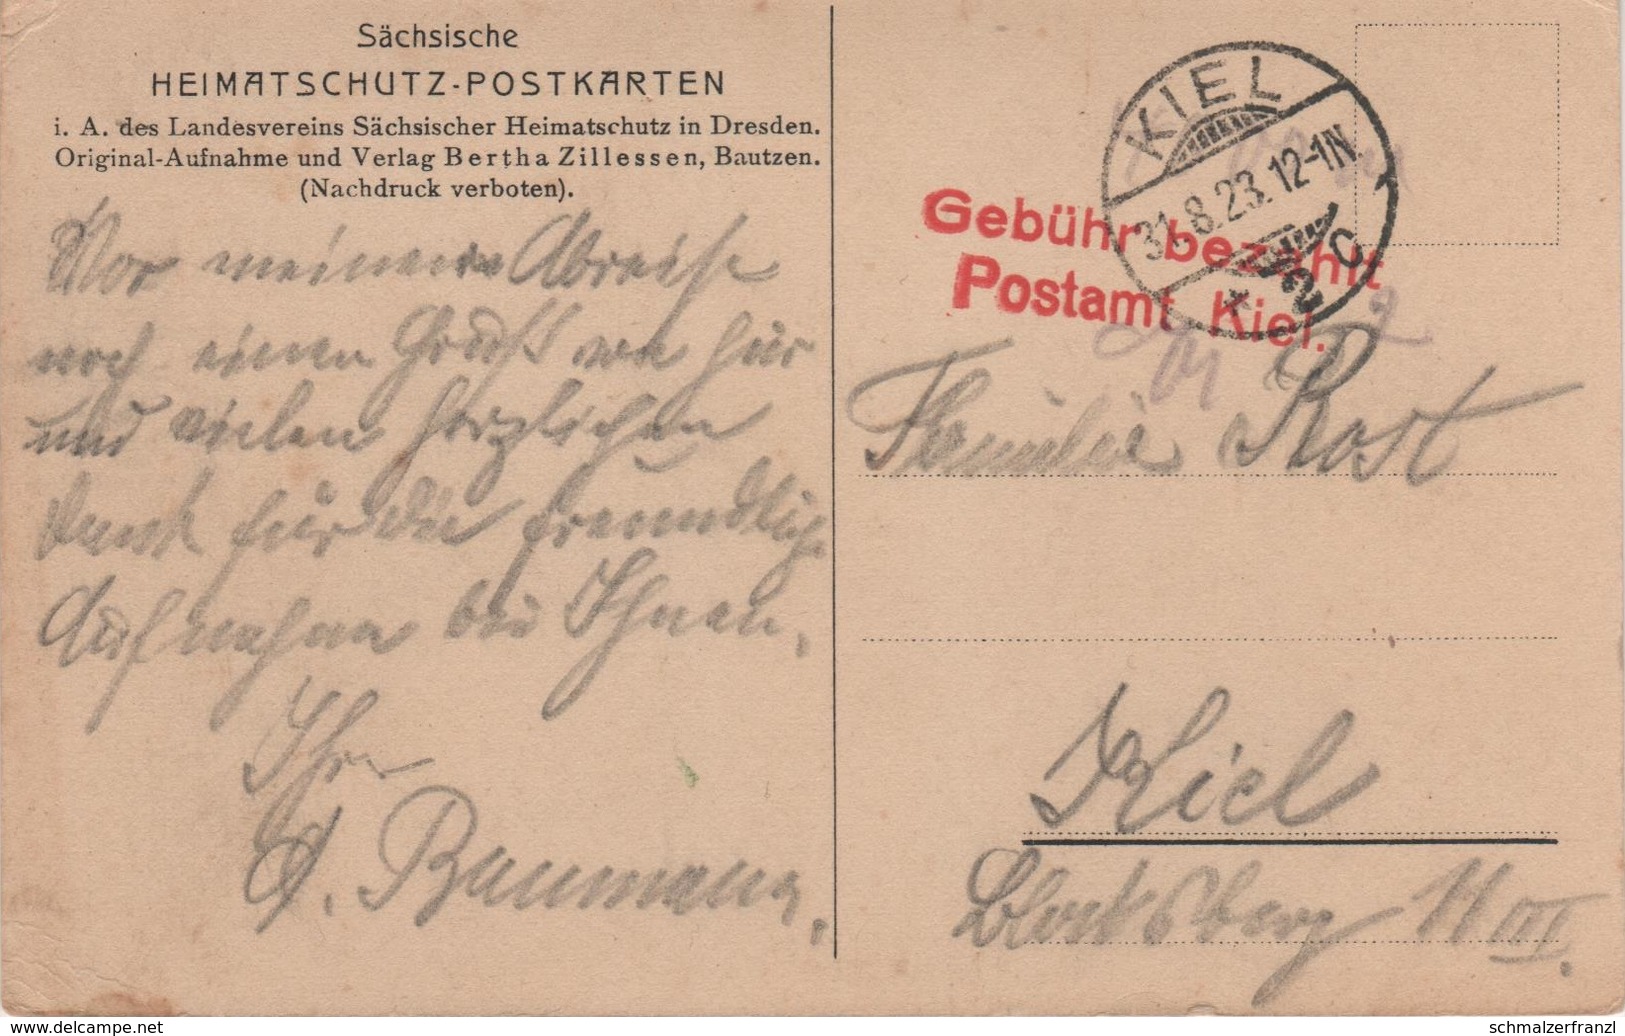 Sächsische
HEIMATSCHUTZ-POSTKARTEN
i. A. des Landesvereins Sächsischer Heimatschutz in Dresden.
Original-Aufnahme und Verlag Bertha Zillessen, Bautzen.
(Nachdruck verboten).
Vor meiner Abreise
noch einen Gruß von hier
und vielen herzlichen
Dank für die freundliche
Aufnahme bei Ihnen.
Ihr
A. Baumann.
KIEL
31.8.23.12-1N.
* 2 c
Gebühr bezahlt
Postamt Kiel.
Familie Rost
Kiel
Blocksberg 11 III.
www.delcampe.net
schmalzerfranzl